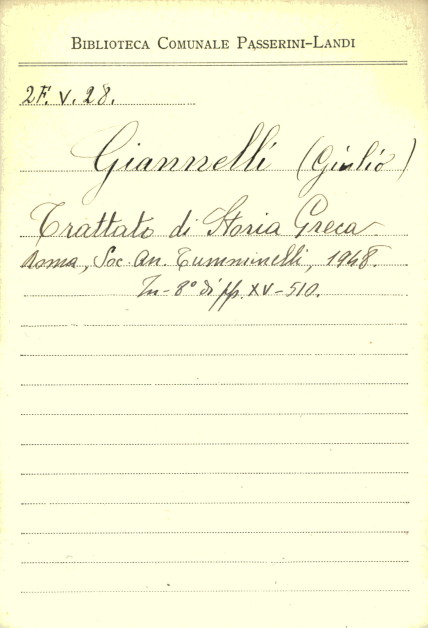 BIBLIOTECA COMUNALE PASSERINI-LANDI
2F. V. 28.
Giannelli (Giulio)
Trattato di Storia Greca
Roma, Soc. An. Tumminelli, 1948.
In-8° di pp. XV-510.